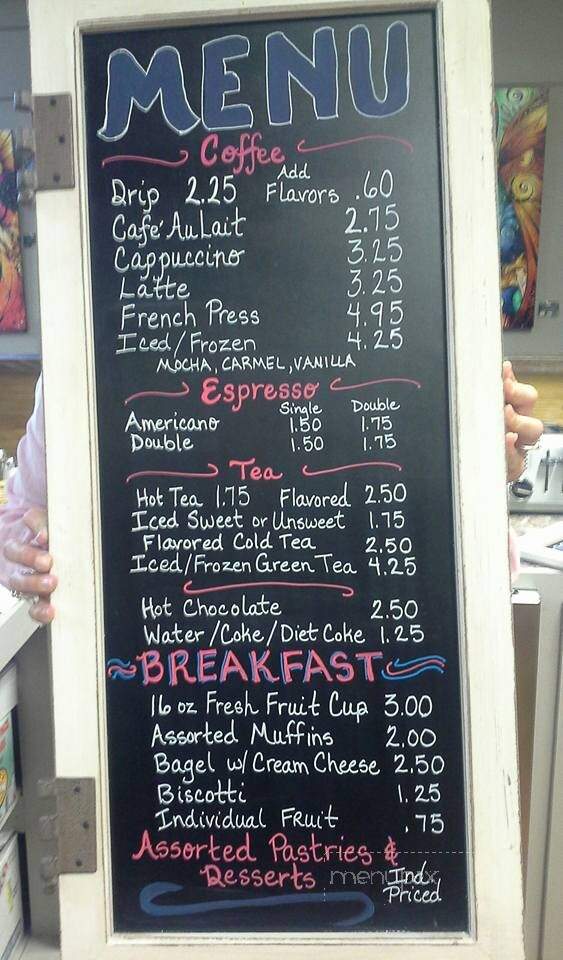 MENU
Coffee
Drip 2.25 Add Flavors .60
Café Au Lait 2.75
Cappuccino 3.25
Latte 3.25
French Press 4.95
Iced/Frozen 4.25
MOCHA, CARMEL, VANILLA
Espresso
Single Double
Americano 1.50 1.75
Double 1.50 1.75
Tea
Hot Tea 1.75 Flavored 2.50
Iced Sweet or Unsweet 1.75
Flavored Cold Tea 2.50
Iced/Frozen Green Tea 4.25
Hot Chocolate 2.50
Water/Coke/Diet Coke 1.25
BREAKFAST
16 oz Fresh Fruit Cup 3.00
Assorted Muffins 2.00
Bagel w/ Cream Cheese 2.50
Biscotti 1.25
Individual Fruit .75
Assorted Pastries &
Desserts Ind. Priced
menupix